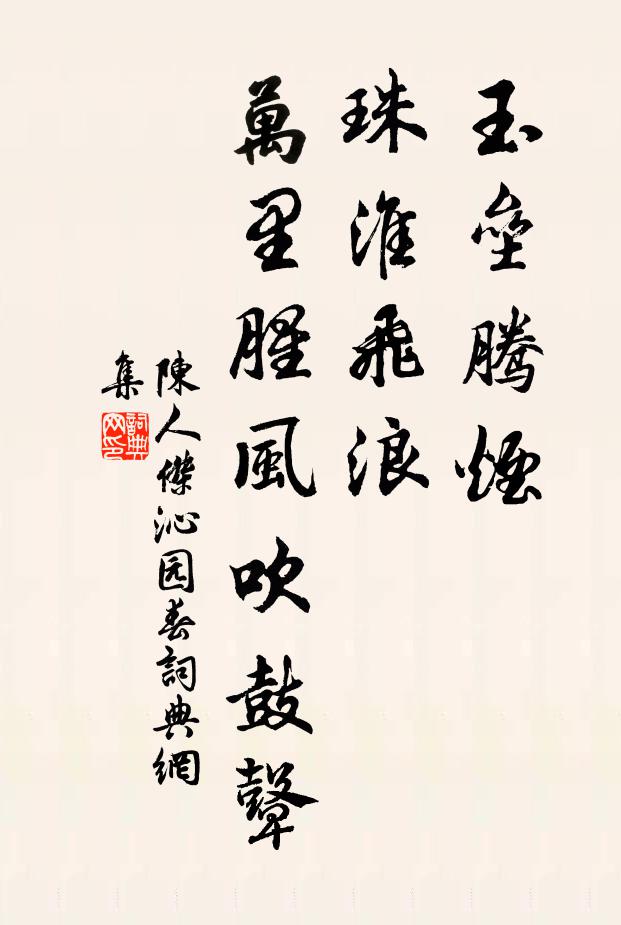 玉垒騰煙
珠淮飛浪
萬里腥風吹鼓鼙
陳人傑沁园春詞典網
集
詞典
网印